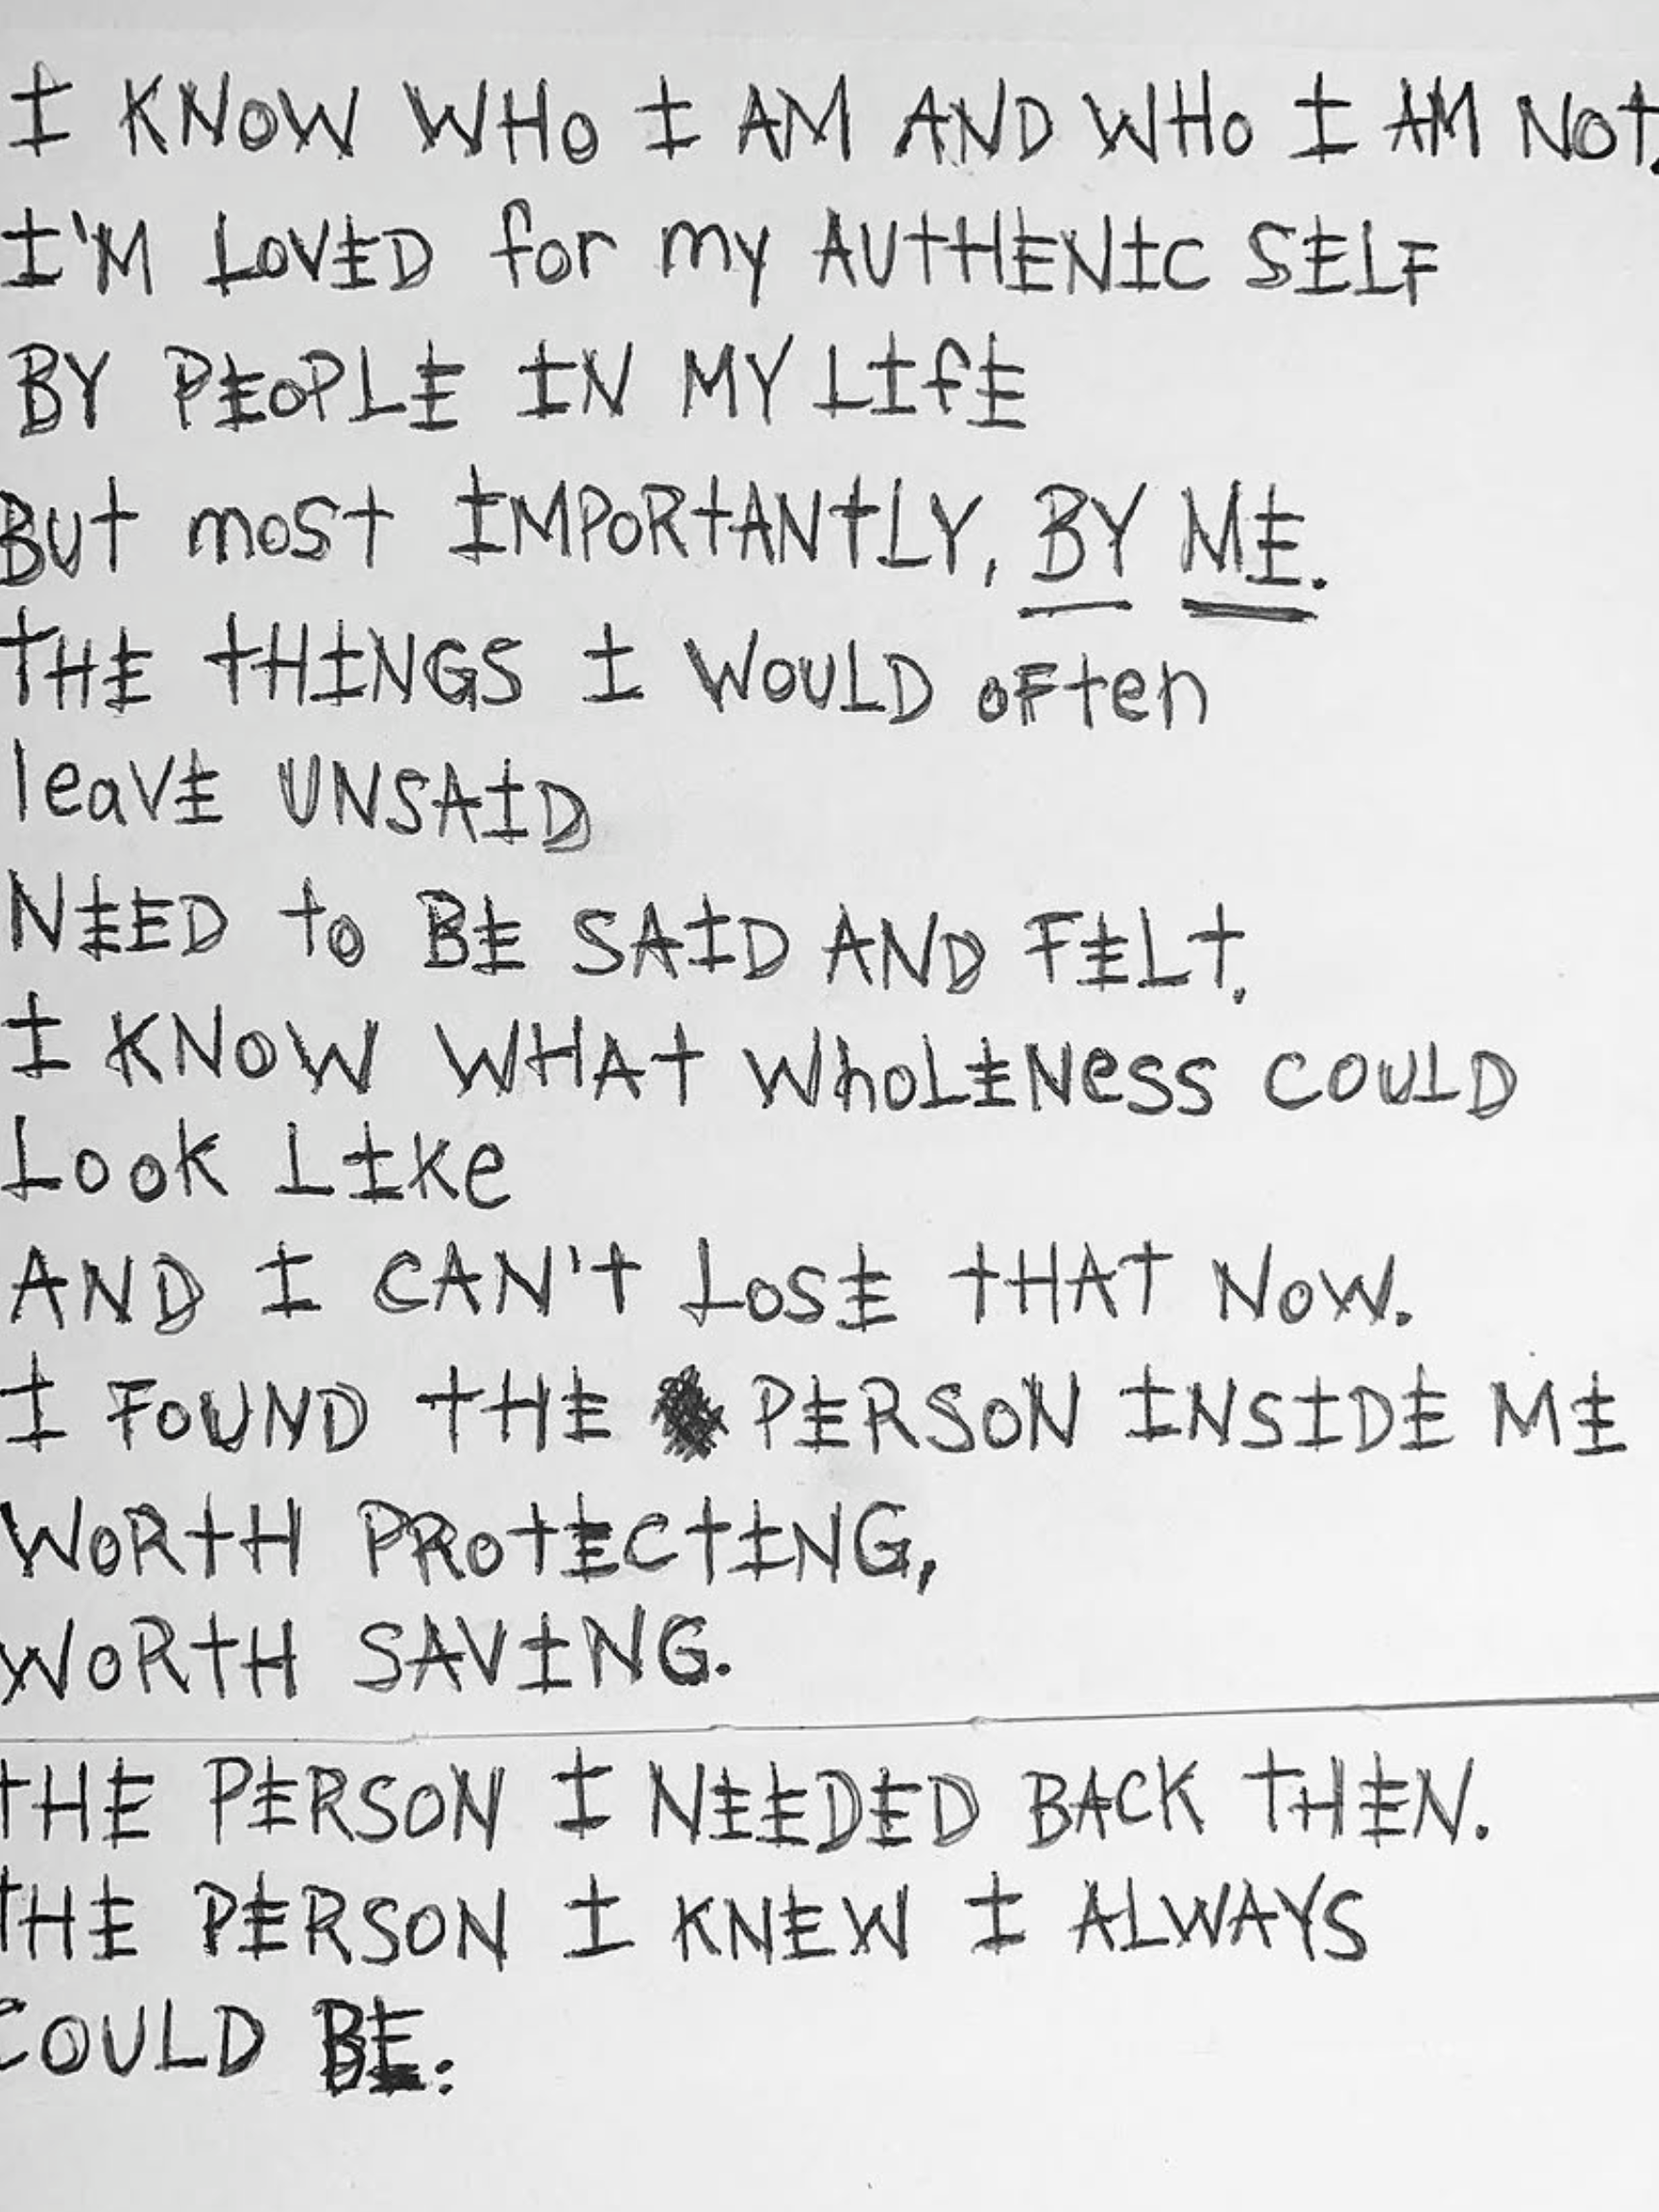 I KNOW WHO I AM AND WHO I AM NOT.
I'M LOVED for my AUTHENIC SELF
BY PEOPLE IN MY LIfE
BUt most IMPORtANtLY, BY ME.
tHE tHINGS I WOULD oFten
leaVE UNSAID
NEED to BE SAID AND FELt.
I KNOW WHAt WhoLENess COULD
Look LIKe
AND I CAN't LOSE tHAT NOW.
I FOUND tHE PERSON INSIDE ME
WORtH PROtECtING,
WORtH SAVING.
tHE PERSON I NEEDED BACK tHEN.
tHE PERSON I KNEW I ALWAYS
COULD BE.